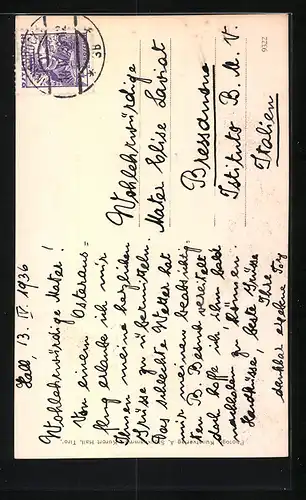 Hall, 13. IV. 1936
Wohlehrwürdige Mater!
Von einem Osteraus=
flug erlaube ich mir
Ihnen meine herzlichen
Grüsse zu übermitteln.
Das schlechte Wetter hat
mir meinen beabsichtig=
ten B. Besuch vereitelt
doch hoffe ich ihn bald
nachholen zu können.
Handküsse, beste Grüsse
Ihre
dankbar ergebene
Wohlehrwürdige
Mater Elise Laviat
Bressanone
Istituto B. M. V.
Italien
9322
36
Kunstverlag A.
Kurort Hall, Tirol